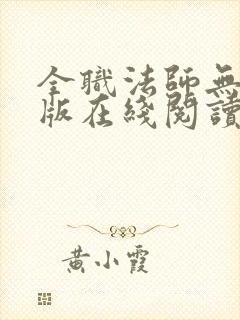 全職法師無
版在綫閱讀
黃小霞